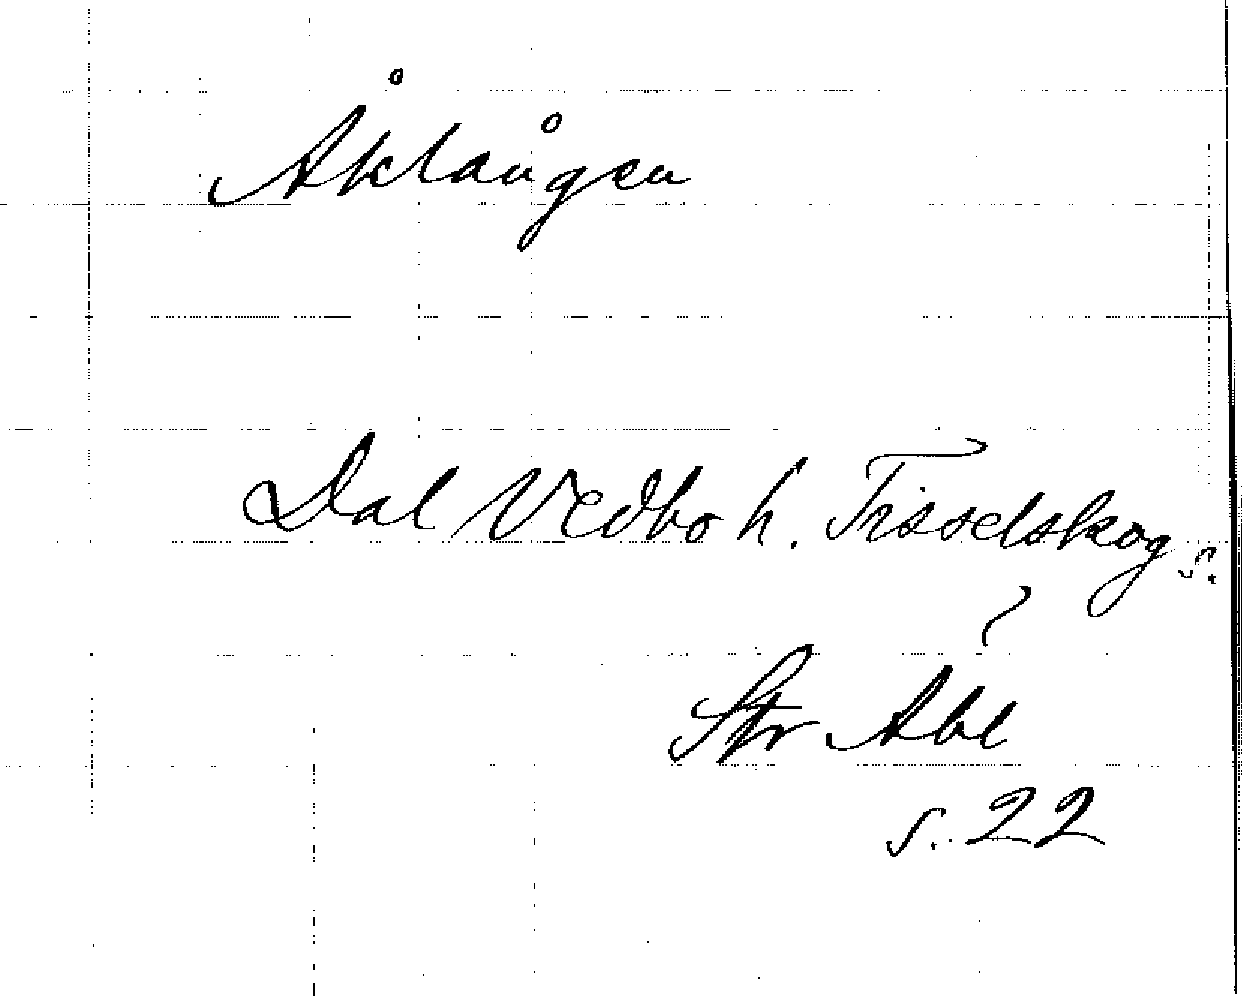 Åklången
Dal Vedbo h. Tisselskog s.
Str Abl
s. 22